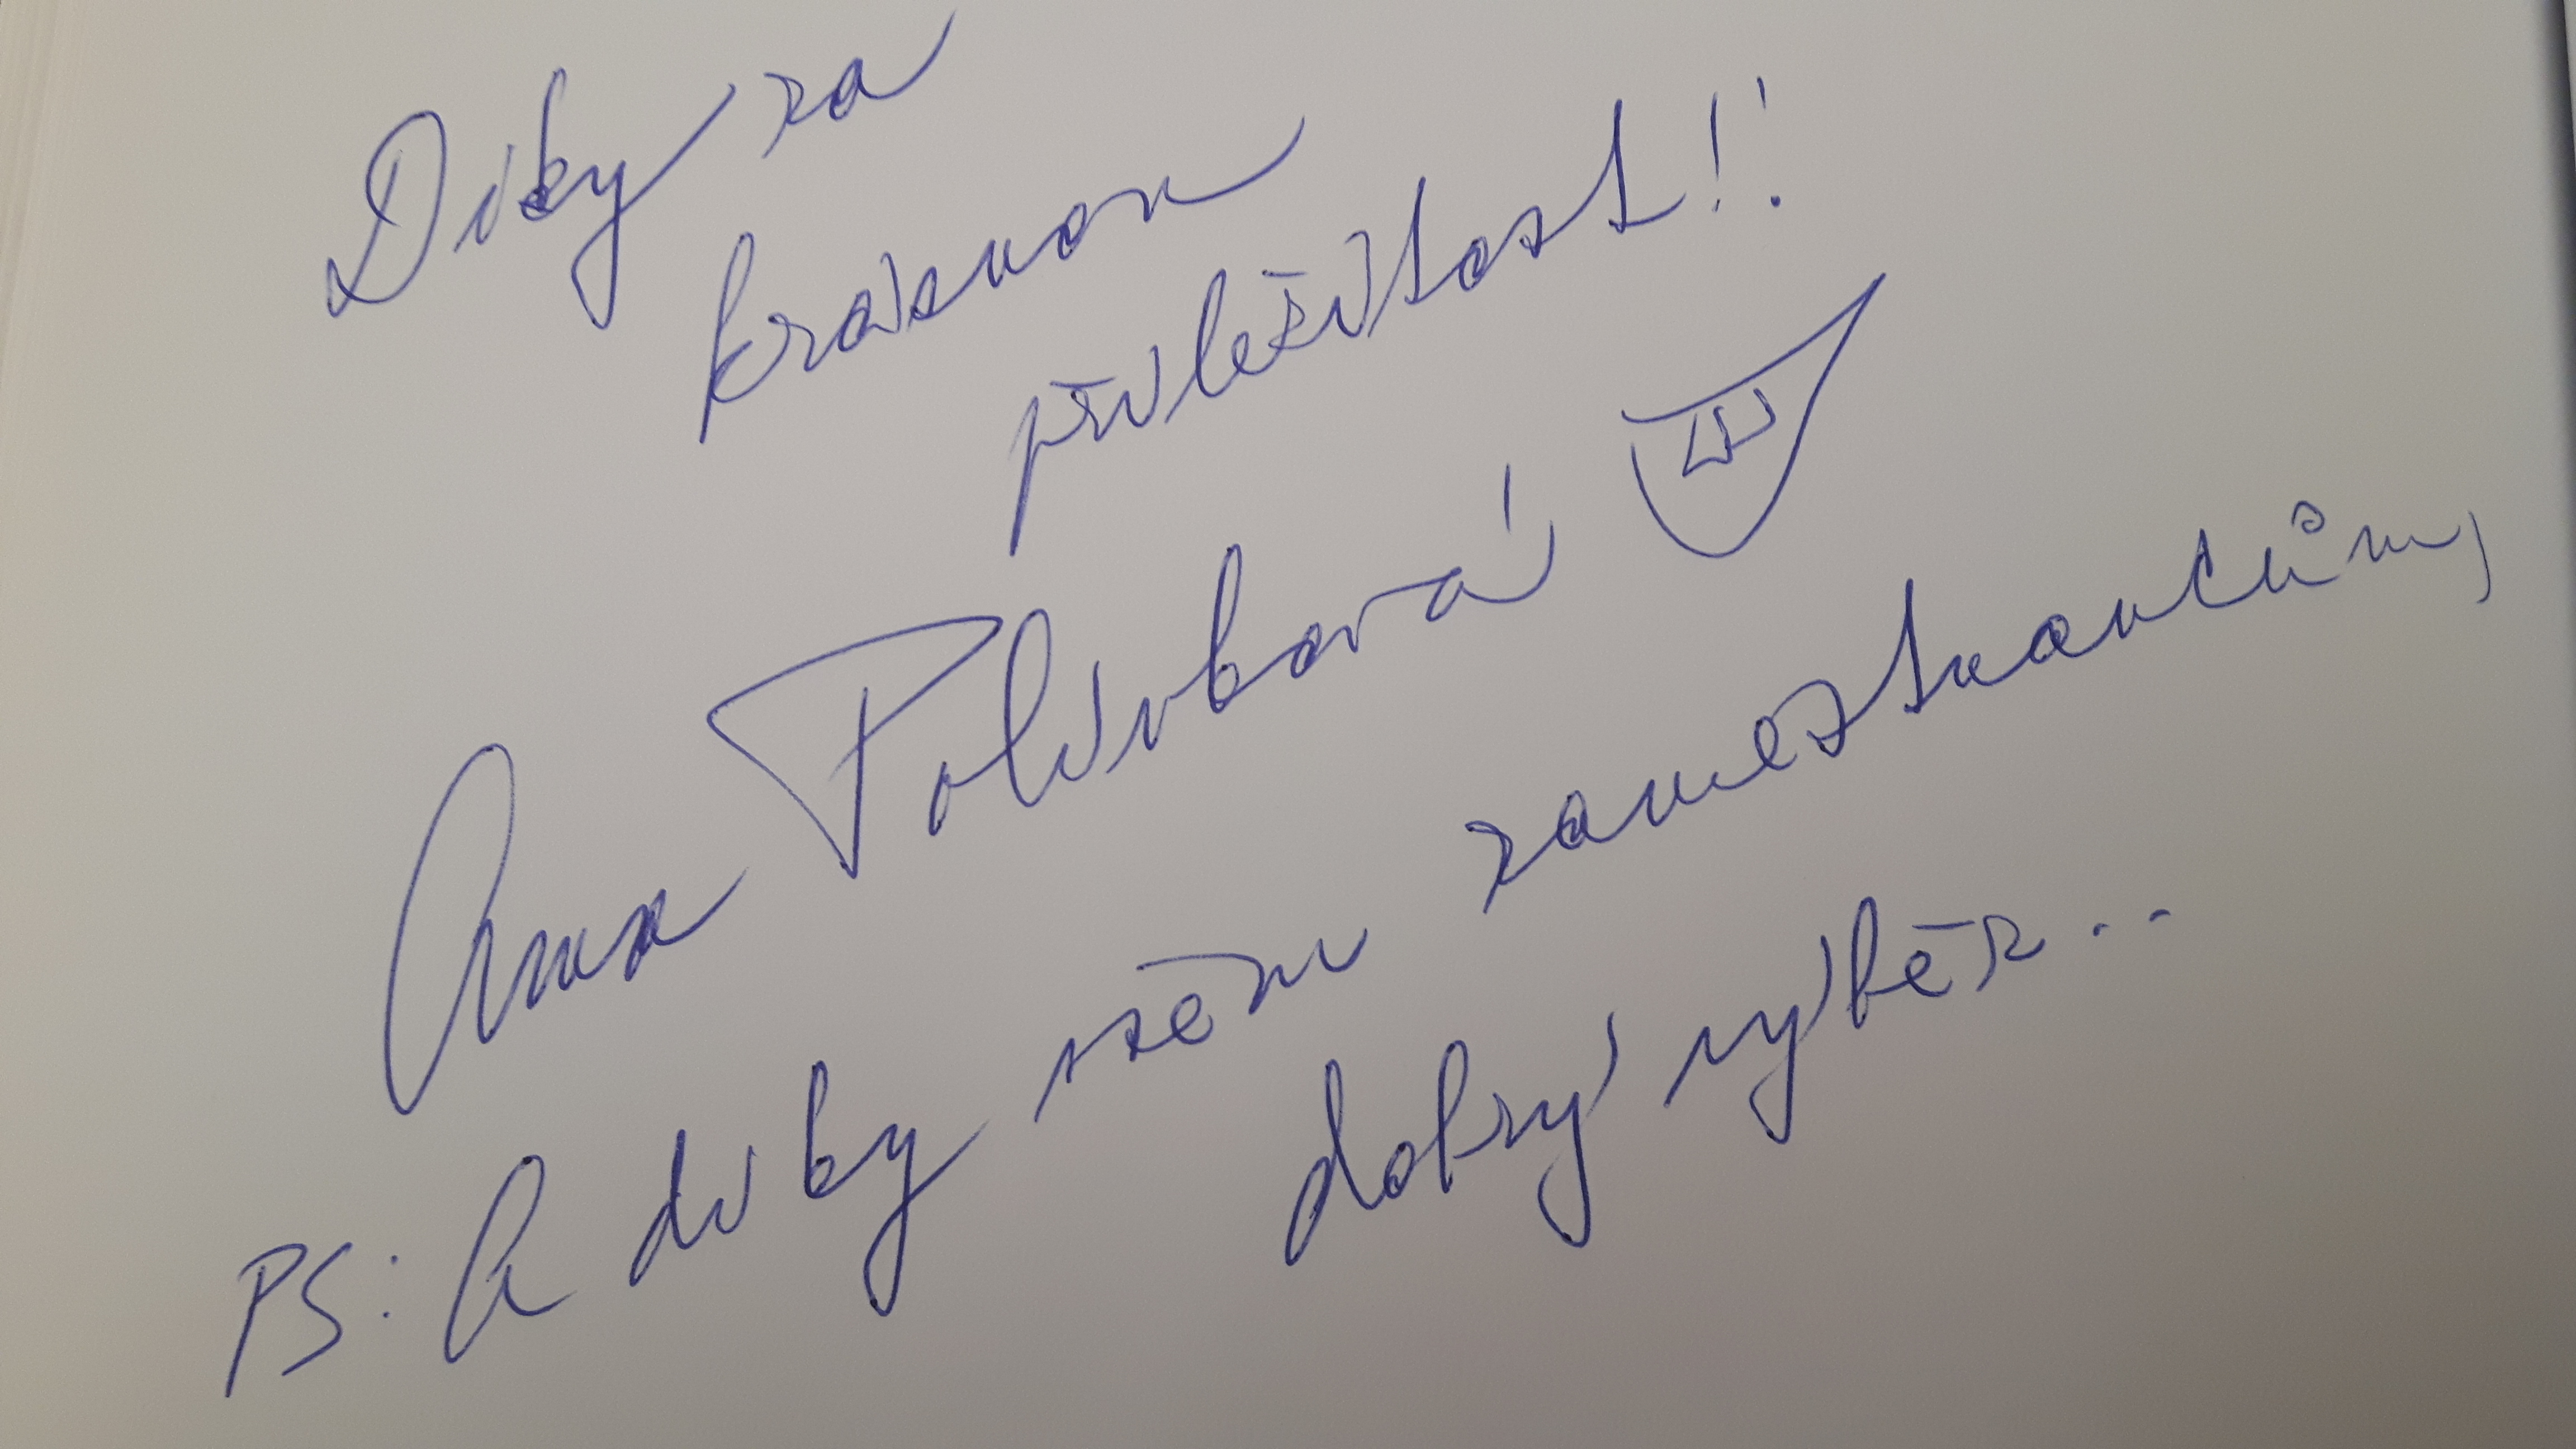 Díky za
krásnou
příležitost!!
Anna Polívková
PS: A díky všem zaměstnancům,
dobrý výběr...